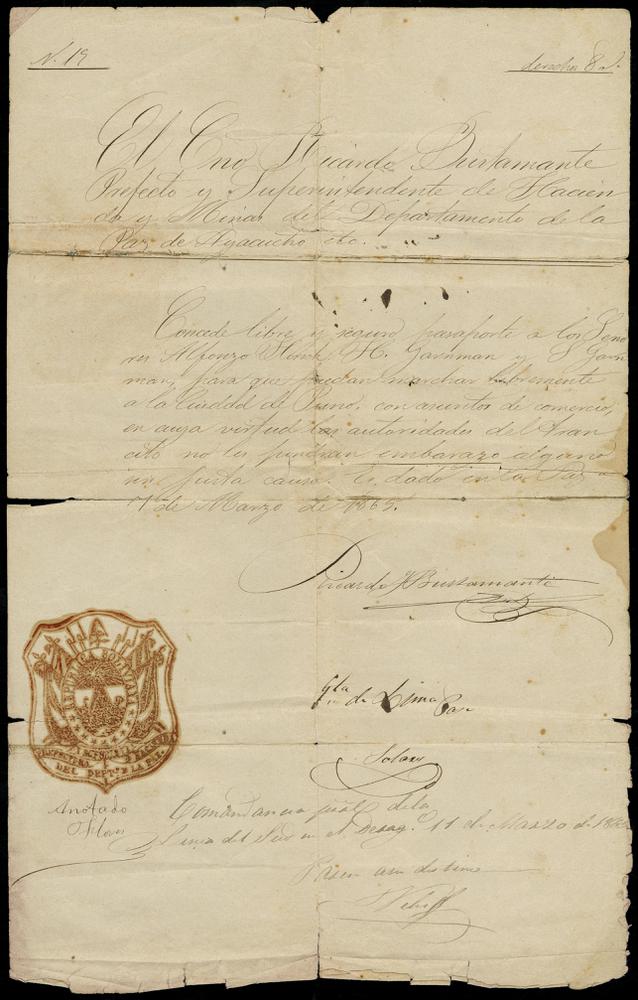 N. 19
derechos 8 r.
El Cno Ricardo Bustamante
Prefecto y Superintendente de Hacien
da y Minas del Departamento de la
Paz de Ayacucho etc.
Concede libre y seguro pasaporte a los Seno
res Alfonzo H. Garnman y S Garn
man, para que puedan marchar libremente
a la Ciudad de Puno, con asuntos de comercio,
en cuya virtud las autoridades del tran
cito no les pondran embarazo alguno
sin justa causa. Es dado en la Paz a
7 de Marzo de 1865.
Ricardo J Bustamante
REPUBLICA BOLIVIANA
PREFECTURA
DEL DEPTO. DE LA PAZ.
de Lima
Solares
Anotado
Comandancia de la
Linea del Sud en el Desago. 11 de Marzo de
Pasen a su destino